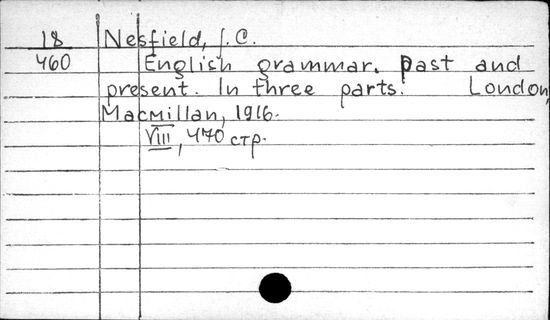 18 Nesfield, J. C.
460 English grammar. Past and
present. In three parts. London,
Macmillan, 1916.
VIII, 470 стр.